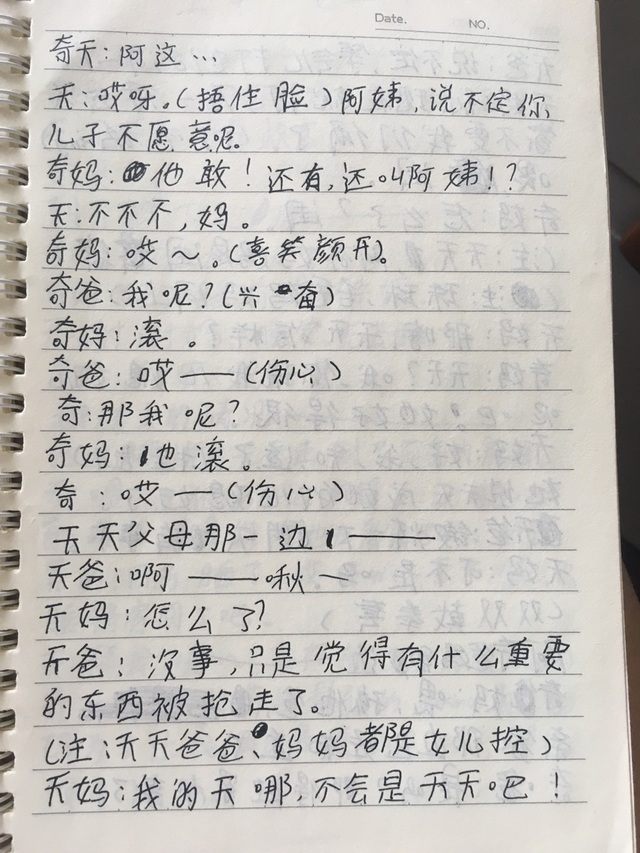 Date.
NO.
奇天：阿这…
天：哎呀。（捂住脸）阿姨，说不定你
儿子不愿意呢。
奇妈：他敢！还有，还叫阿姨！？
天：不不不，妈。
奇妈：哎～。（喜笑颜开）。
奇爸：我呢？（兴奋）
奇妈：滚。
奇爸：哎——（伤心）
奇：那我呢？
奇妈：也滚。
奇：哎——（伤心）
天天父母那一边———
天爸：啊——啾—
天妈：怎么了？
天爸：没事，只是觉得有什么重要
的东西被抢走了。
（注：天天爸爸、妈妈都是女儿控）
天妈：我的天哪，不会是天天吧！